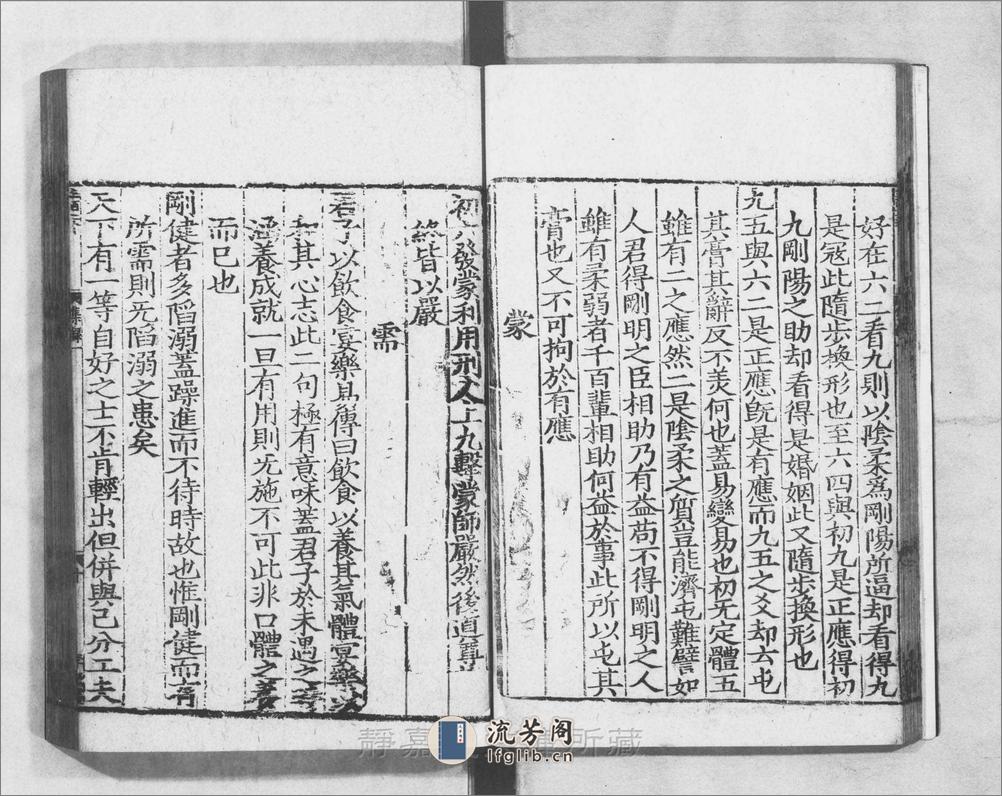 好在六二看九則以陰柔爲剛陽所逼却看得九
是寇此隨步換形也至六四與初九是正應得初
九剛陽之助却看得是婚姻此又隨步換形也
九五與六二是正應旣是有應而九五之爻却云屯
其膏其辭反不美何也蓋易變易也初无定體五
雖有二之應然二是陰柔之質豈能濟屯難譬如
人君得剛明之臣相助乃有益苟不得剛明之人
雖有柔弱者千百輩相助何益於事此所以屯其
膏也又不可拘於有應
蒙
初六發蒙利用刑人上九擊蒙師嚴然後道尊
終皆以嚴
需
君子以飲食宴樂易傳曰飲食以養其氣體宴樂以
和其心志此二句極有意味蓋君子於未遇之
涵養成就一旦有用則无施不可此非口體之養
而已也
剛健者多陷溺蓋躁進而不待時故也惟剛健而
所需則无陷溺之患矣
天下有一等自好之士不肯輕出但併與己分工夫
靜嘉 所藏
流芳阁
lfglib.cn